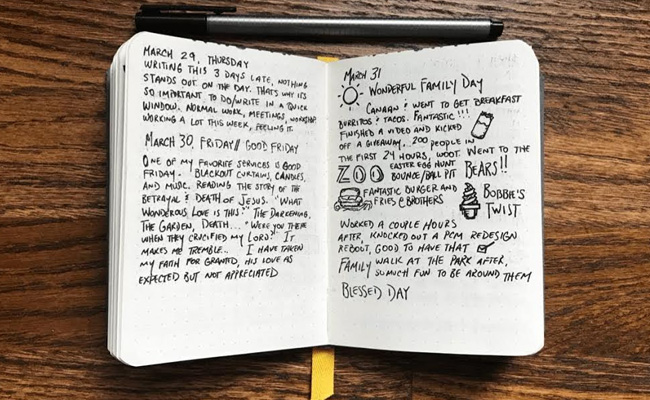 MARCH 29, THURSDAY
WRITING THIS 3 DAYS LATE, NOTHING
STANDS OUT ON THE DAY. THAT'S WHY IT'S
SO IMPORTANT TO DO/WRITE IN A QUICK
WINDOW. NORMAL WORK, MEETINGS, WORKSHOP
WORKING A LOT THIS WEEK, FEELING IT.
MARCH 30, FRIDAY // GOOD FRIDAY
ONE OF MY FAVORITE SERVICES IS GOOD
FRIDAY. BLACKOUT CURTAINS, CANDLES,
AND MUSIC. READING THE STORY OF THE
BETRAYAL & DEATH OF JESUS. "WHAT
WONDEROUS LOVE IS THIS" THE DARKENING,
THE GARDEN, DEATH... "WERE YOU THERE
WHEN THEY CRUCIFIED MY LORD?" IT
MAKES ME TREMBLE... I HAVE TAKEN
MY FAITH FOR GRANTED, HIS LOVE AS
EXPECTED BUT NOT APPRECIATED
MARCH 31
WONDERFUL FAMILY DAY
CANAAN & I WENT TO GET BREAKFAST
BURRITOS & TACOS. FANTASTIC!!!
FINISHED A VIDEO AND KICKED
OFF A GIVEAWAY... 200 PEOPLE IN
THE FIRST 24 HOURS, WOOT. WENT TO THE
ZOO EASTER EGG HUNT BEARS!!
BOUNCE/BALL PIT
FANTASTIC BURGER AND BOBBIE'S
FRIES @ BROTHERS TWIST
WORKED A COUPLE HOURS
AFTER, KNOCKED OUT A PCM REDESIGN
REBOUT, GOOD TO HAVE THAT
FAMILY WALK AT THE PARK AFTER,
SO MUCH FUN TO BE AROUND THEM
BLESSED DAY